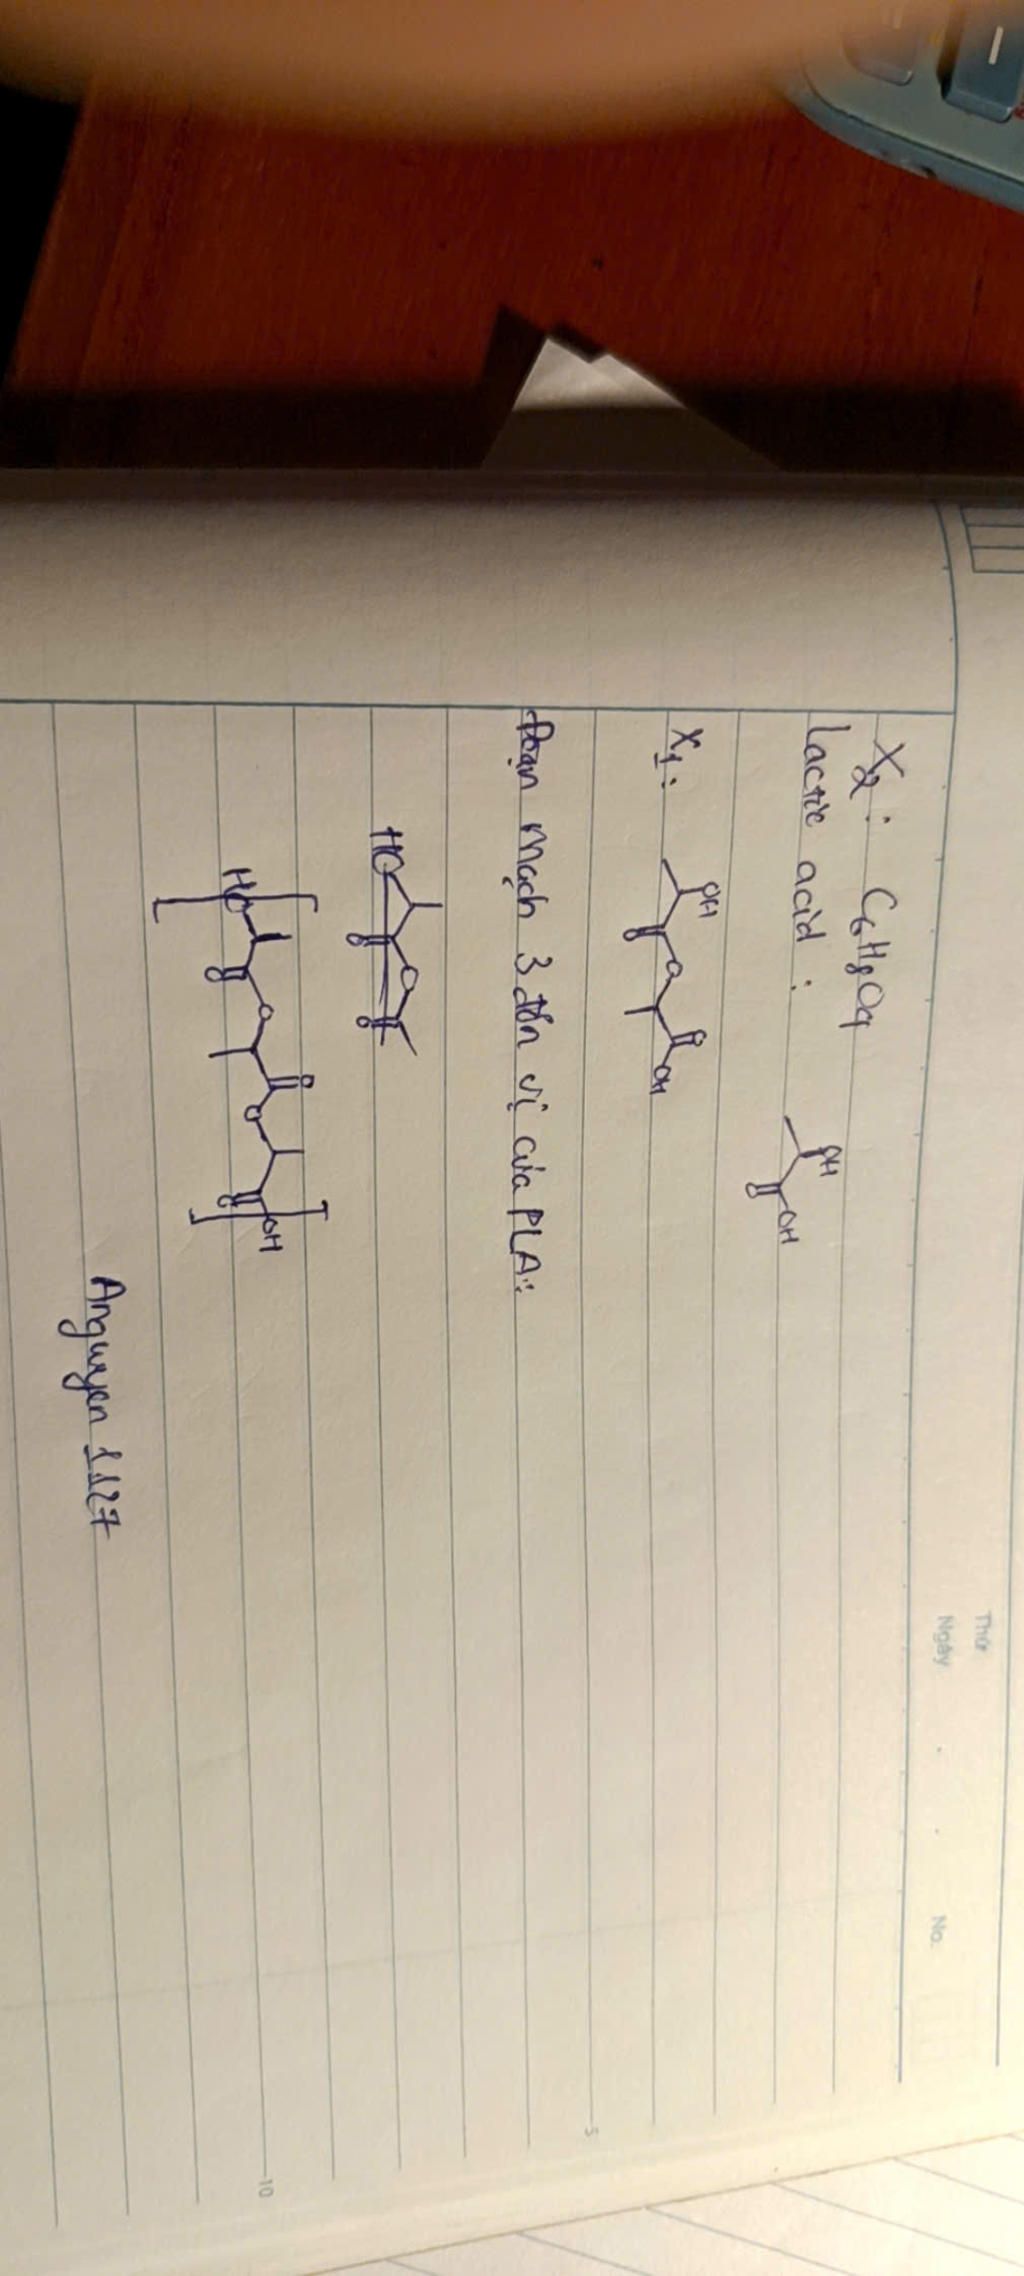 Thứ
Ngày
No.
X₂ : C₆H₈O₄
Lactic acid :
OH
O
OH
X₁ :
OH
O
O
O
OH
5
Đoạn mạch 3 đơn vị của PLA :
HO
O
O
O
HO
O
O
O
O
O
OH
10
Anguyen 1127